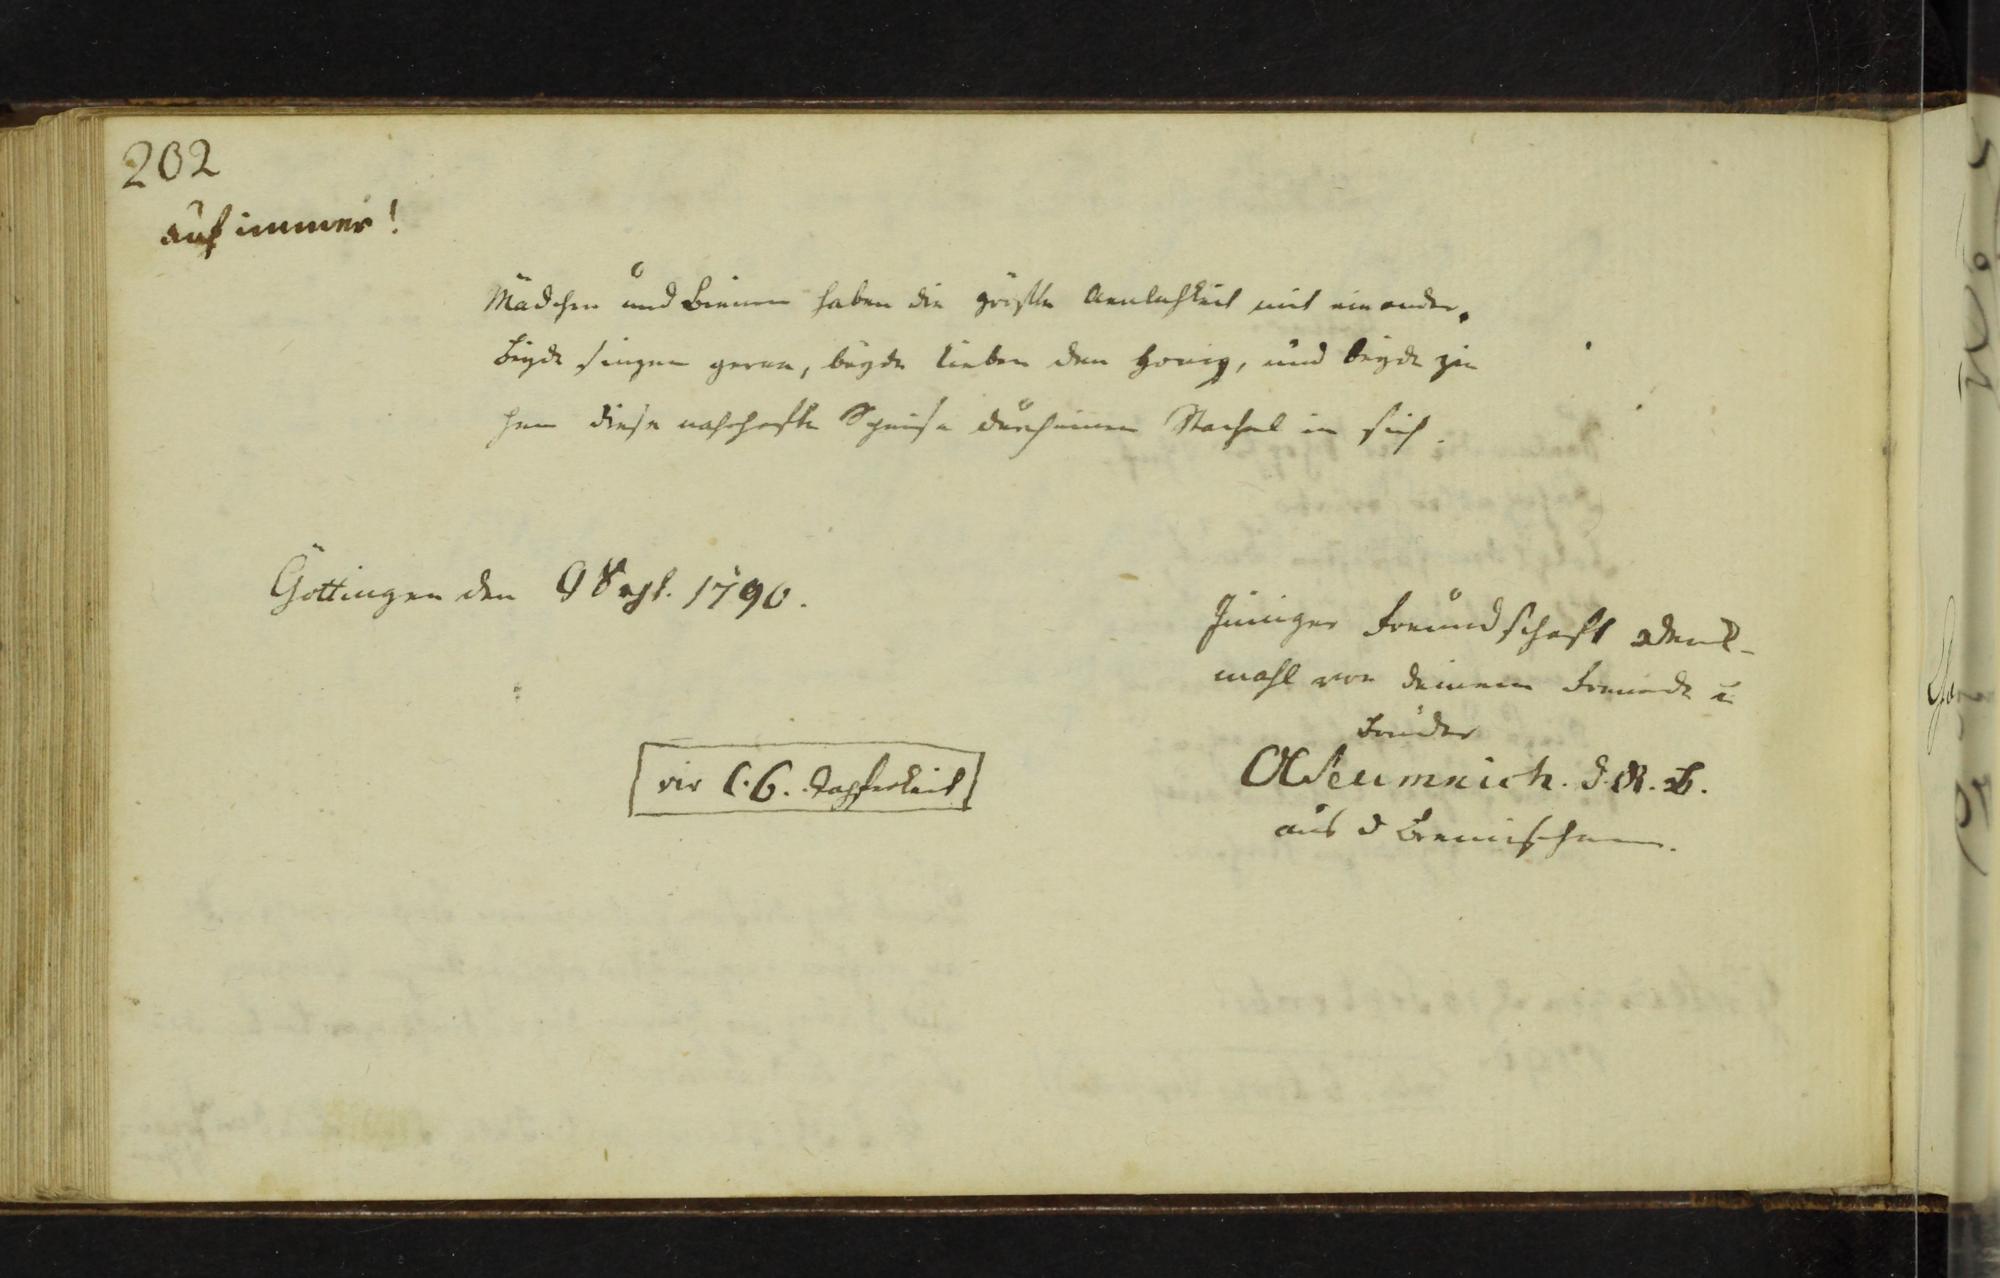 202
auf immer!
Mädchen und Bienen haben die größte Aenlichkeit mit einander.
Beyde singen geren, beyde lieben den Honig, und beyde zie
hen diese naschhafte Speise durch einen Stachel in sich.
Göttingen den 9 Sept. 1790.
Inniger Freundschaft Denk-
mahl von deinem Freunde u
Bruder
vid C. G. Tapferkeit
Neumnich. d. R. B.
aus d Bremischen.